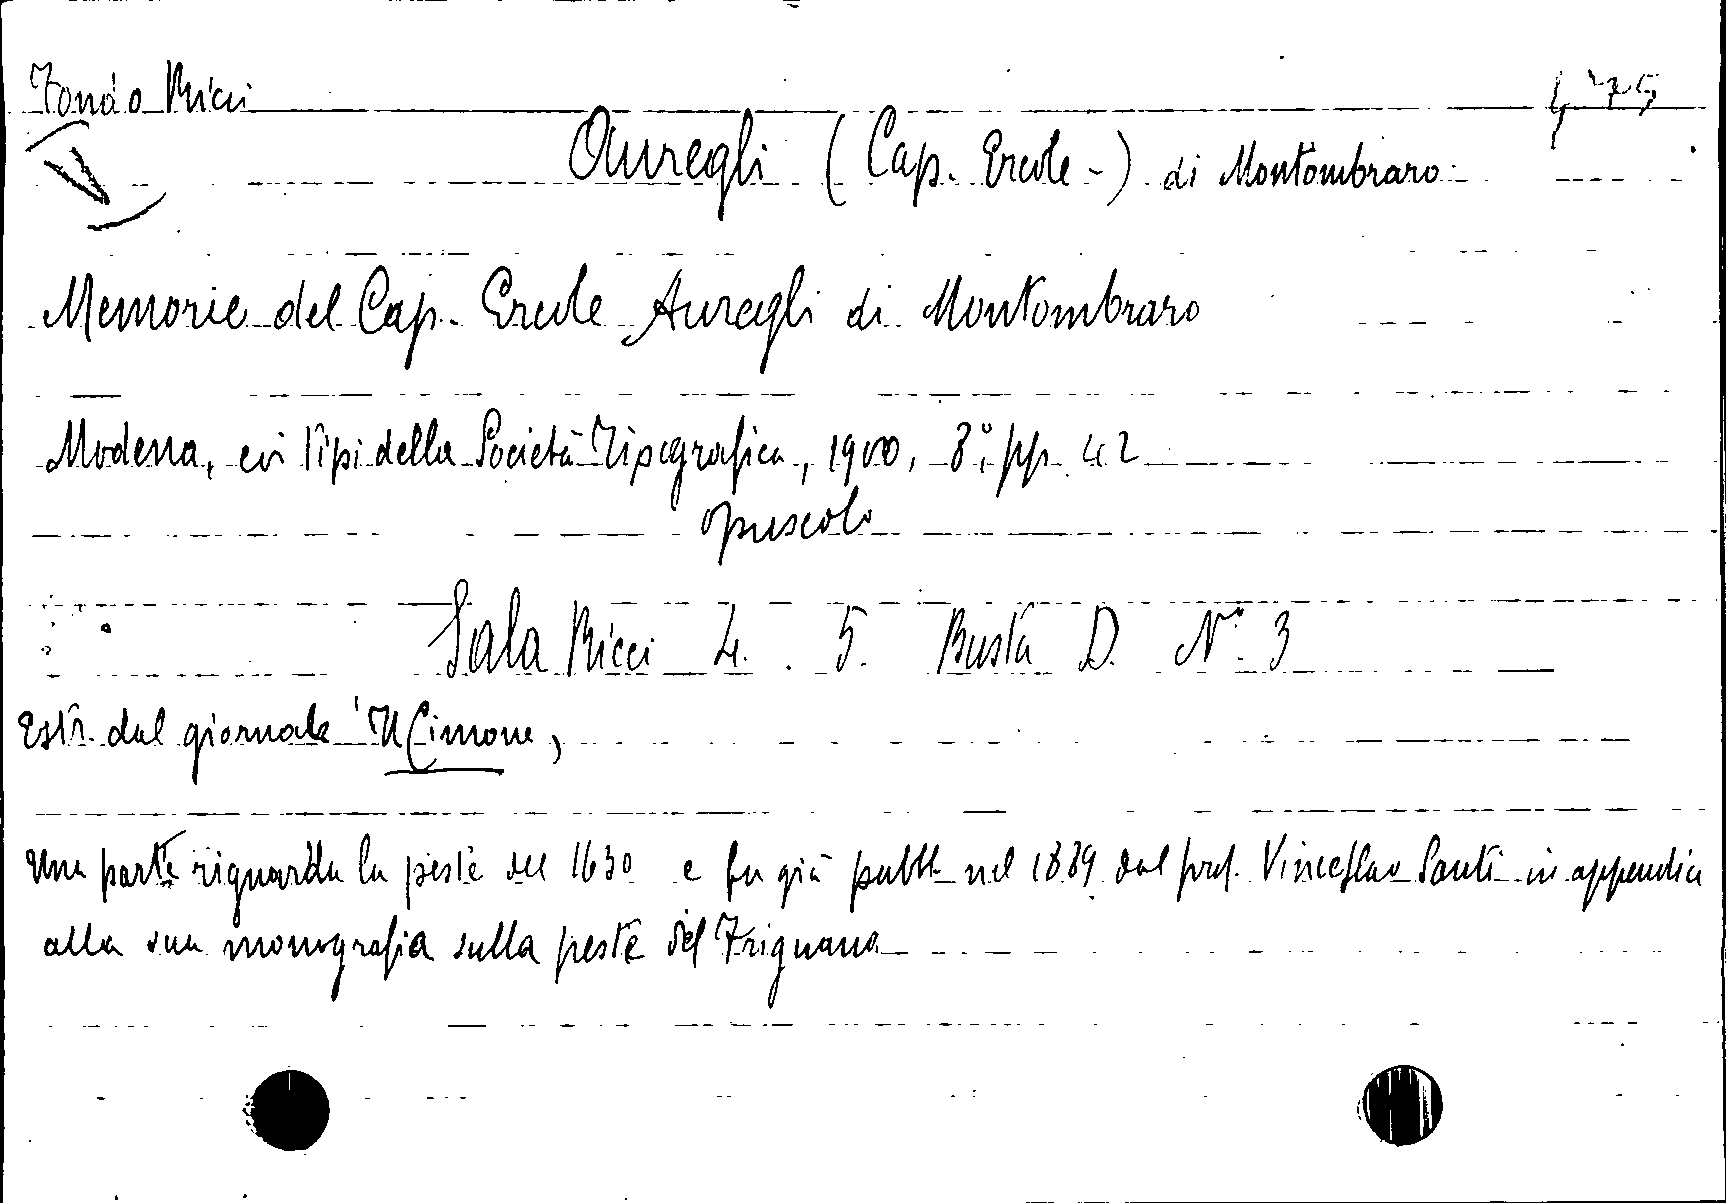 Fondo Ricci
V
Auregli (Cap. Ercole -) di Montombraro
Memorie del Cap. Ercole Auregli di Montombraro
Modena, coi tipi della Società Tipografica, 1900, 8°, pp. 42
opuscolo
Sala Ricci 4. 5. Busta D. N° 3
Estr. dal giornale "Il Cimone,
Una parte riguarda la peste del 1630 e fu già pubbl. nel 1889 dal prof. Vinceslao Santi in appendice
alla sua monografia sulla peste del Frignano